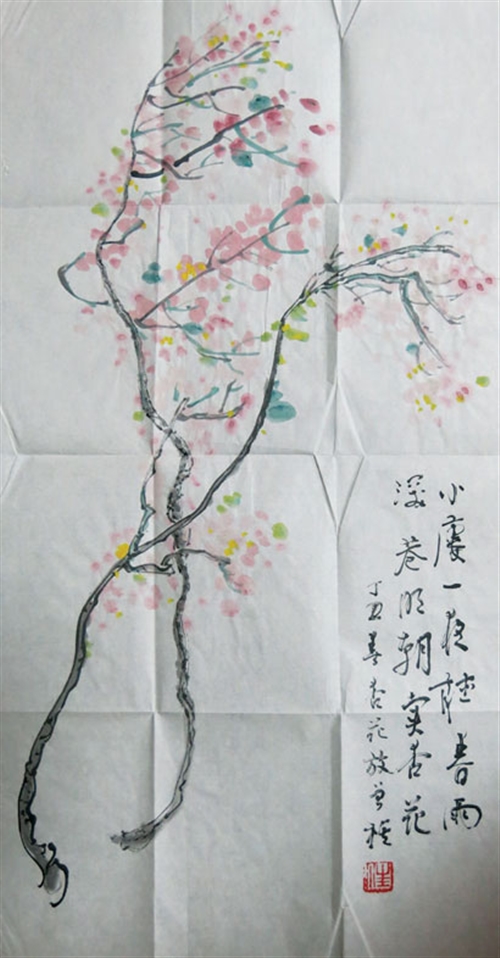 小廔一夜聽春雨
深巷明朝卖杏花
丁丑春杏花放